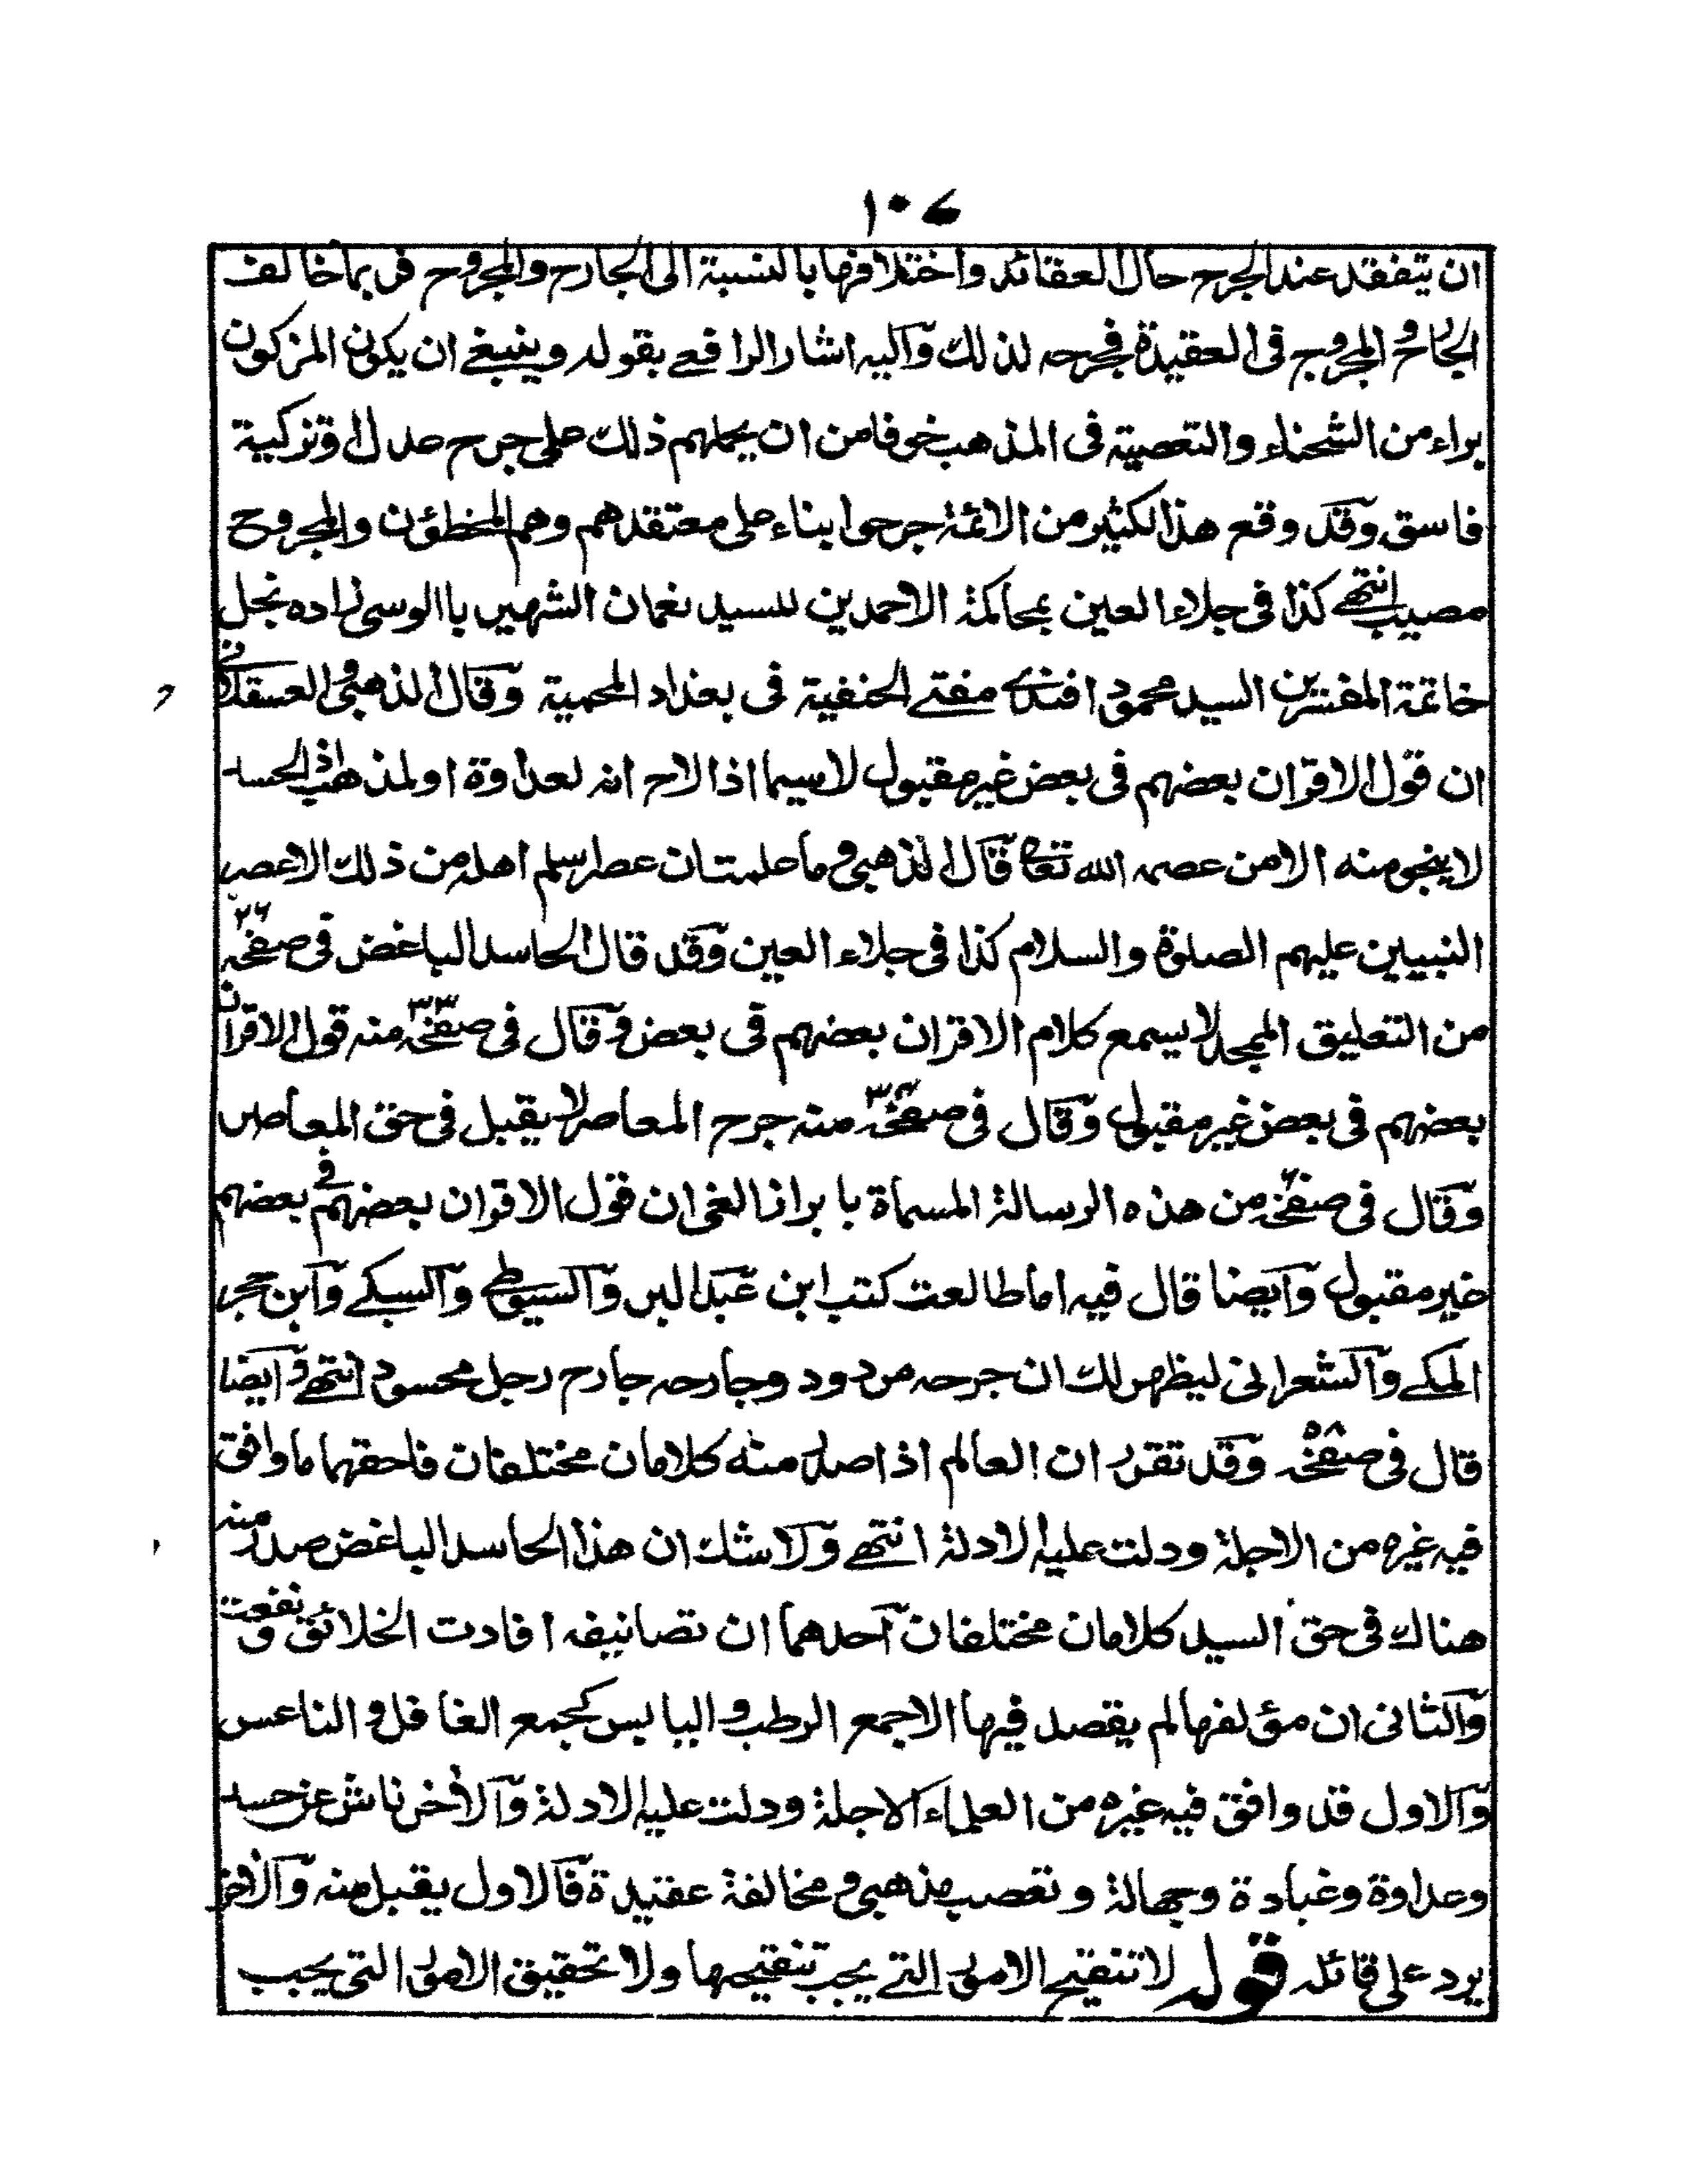 ١٠٤
ان يتفقد عند الجرح حال العقائد واختلافها بالنسبة الى الجارح والمجروح فربما خالف
الجارح والمجروح فى العقيدة فجرحه لذلك وآليه اشار الرافعے بقوله وينبغے ان يكون المزكون
براء من الشحناء والتعصبة فى المذهب خوفا من ان يحملهم ذلك على جرح عدل او تزكية
فاسق وقد وقع هذا لكثير من الائمة جرحوا بناء على معتقدهم وهم المخطؤن والمجروح
مصيب انتهے كذا فى جلاء العين بمحاكمة الاحمدين للسيد نعمان الشهير باالوسى زاده نجل
خاتمة المفسرين السيد محمود افندے مفتے الحنفية فى بغداد المحمية وقال الذهبى والعسقلانے
ان قول الاقران بعضهم فى بعض غير مقبول لاسيما اذا لاح انه لعداوة او لمذهب اذ الحسد
لا ينجو منه الا من عصمه الله تعا قال الذهبى وما علمت ان عصر اسلم اهله من ذلك الا عصر
النبيين عليهم الصلوة والسلام كذا فى جلاء العين وقد قال الحاسد الباغض فى صفحه ٢٦
من التعليق الممجد لا يسمع كلام الاقران بعضهم فى بعض وقال فى صفحه ٣٣ منه قول الاقران
بعضهم فى بعض غير مقبول وقال فى صفحه منه جرح المعاصر لا يقبل فى حق المعاصر
وقال فى صفحه من هذه الرسالة المسماة با براز الغى ان قول الاقران بعضهم فے بعضهم
غير مقبول وآيضا قال فيه اما طالعت كتب ابن عبد البر والسيوطے والسبكے وآبن حجر
المكے والشعرانى ليظهر لك ان جرحه مردود وجارحه جارح رجل محسود انتهے وآيضا
قال فى صفحه وقد تقرر ان العالم اذا صدر منه كلامان مختلفان فاحقهما ما وافق
فيه غيره من الاجلة ودلت عليه الادلة انتهے ولا شك ان هذا الحاسد الباغض صدر منه
هناك فى حق السيد كلامان مختلفان آحدهما ان تصانيفه افادت الخلائق ونفعت
والثانى ان مؤلفها لم يقصد فيها الا جمع الرطب واليابس كجمع الغافل والناعس
والاول قد وافق فيه غيره من العلماء الاجلة ودلت عليه الادلة والآخر ناش عن حسد
وعداوة وغباوة وجهالة وتعصب مذهبى ومخالفة عقيدة فالاول يقبل منه والآخر
يرد على قائله قوله لا تنقيح الامور التے يجب تنقيحها ولا تحقيق الامور التى يجب